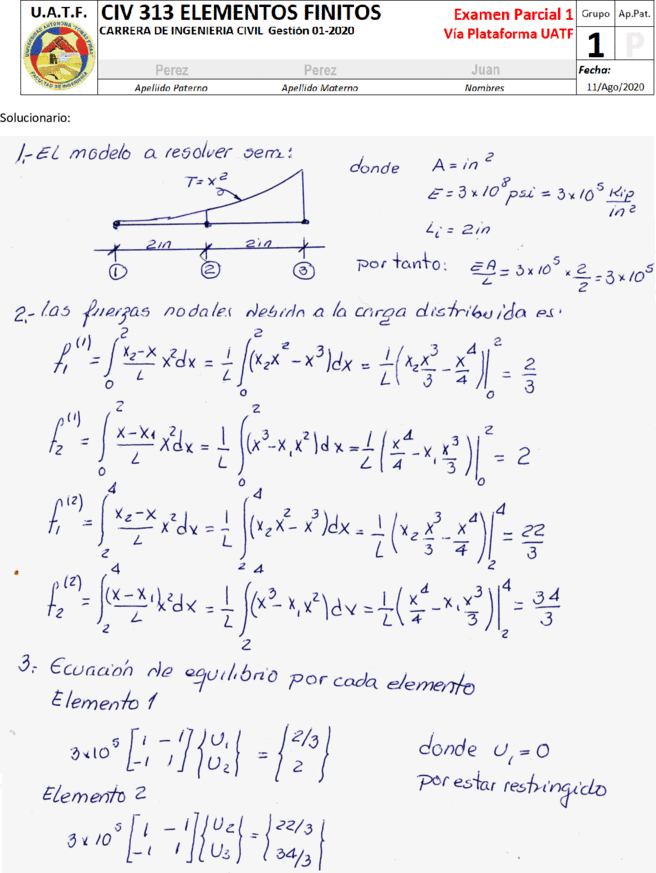 U.A.T.F.
CIV 313 ELEMENTOS FINITOS
CARRERA DE INGENIERIA CIVIL Gestión 01-2020
Examen Parcial 1
Vía Plataforma UATF
Grupo
Ap.Pat.
1
P
Perez
Perez
Juan
Fecha:
Apellido Paterno
Apellido Materno
Nombres
11/Ago/2020
Solucionario:
1.- EL modelo a resolver sera:
T=x²
2in 2in
1 2 3
donde A = in²
E = 3×10⁸ psi = 3×10⁵ Kip/in²
Lᵢ = 2in
por tanto: EA/L = 3×10⁵ × 2/2 = 3×10⁵
2.- Las fuerzas nodales debido a la carga distribuida es:
f₁⁽¹⁾ = ∫₀² (x₂-x)/L x²dx = 1/L ∫₀² (x₂x² - x³)dx = 1/L (x₂ x³/3 - x⁴/4)|₀² = 2/3
f₂⁽¹⁾ = ∫₀² (x-x₁)/L x²dx = 1/L ∫₀² (x³-x₁x²)dx = 1/L (x⁴/4 - x₁ x³/3)|₀² = 2
f₁⁽²⁾ = ∫₂⁴ (x₂-x)/L x²dx = 1/L ∫₂⁴ (x₂x² - x³)dx = 1/L (x₂ x³/3 - x⁴/4)|₂⁴ = 22/3
f₂⁽²⁾ = ∫₂⁴ (x-x₁)/L x²dx = 1/L ∫₂⁴ (x³-x₁x²)dx = 1/L (x⁴/4 - x₁ x³/3)|₂⁴ = 34/3
3.- Ecuación de equilibrio por cada elemento
Elemento 1
3×10⁵ [1 -1; -1 1] {U₁; U₂} = {2/3; 2}
donde U₁ = 0
por estar restringido
Elemento 2
3×10⁵ [1 -1; -1 1] {U₂; U₃} = {22/3; 34/3}